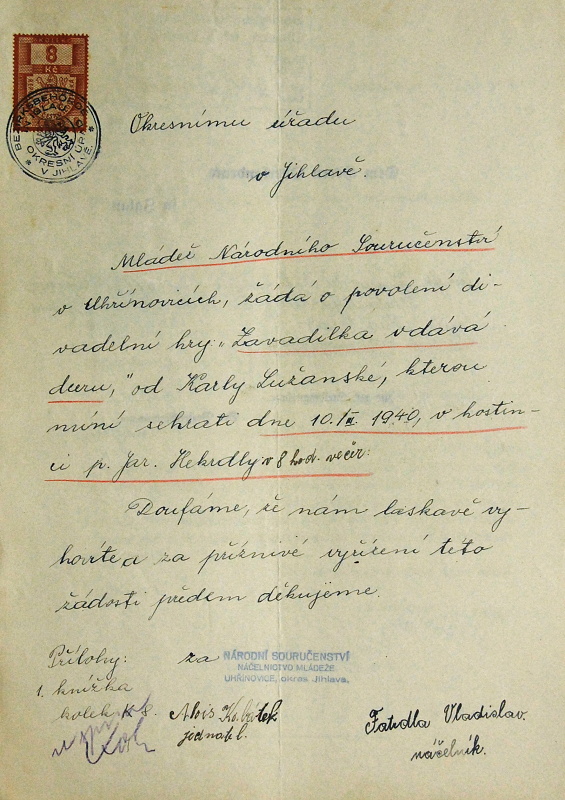 8
Kč
BEZIRKSBEHÖRDE
IGLAU
OKRESNÍ ÚŘAD
V JIHLAVĚ
Okresnímu úřadu
v Jihlavě
Mládež Národního Souručenství
v Uhřínovicích, žádá o povolení di-
vadelní hry: „Zavadilka vdává
dceru," od Karly Lužanské, kterou
míní sehrati dne 10./III. 1940, v hostin-
ci p. Jar. Hekrdly v 8 hod. večer.
Doufáme, že nám laskavě vy-
hovíte a za příznivé vyřízení této
žádosti předem děkujeme.
Přílohy: za
NÁRODNÍ SOURUČENSTVÍ
NÁČELNICTVO MLÁDEŽE
UHŘÍNOVICE, okres Jihlava.
1. knížka
kolek
Alois
jednatel.
Vladislav.
náčelník.